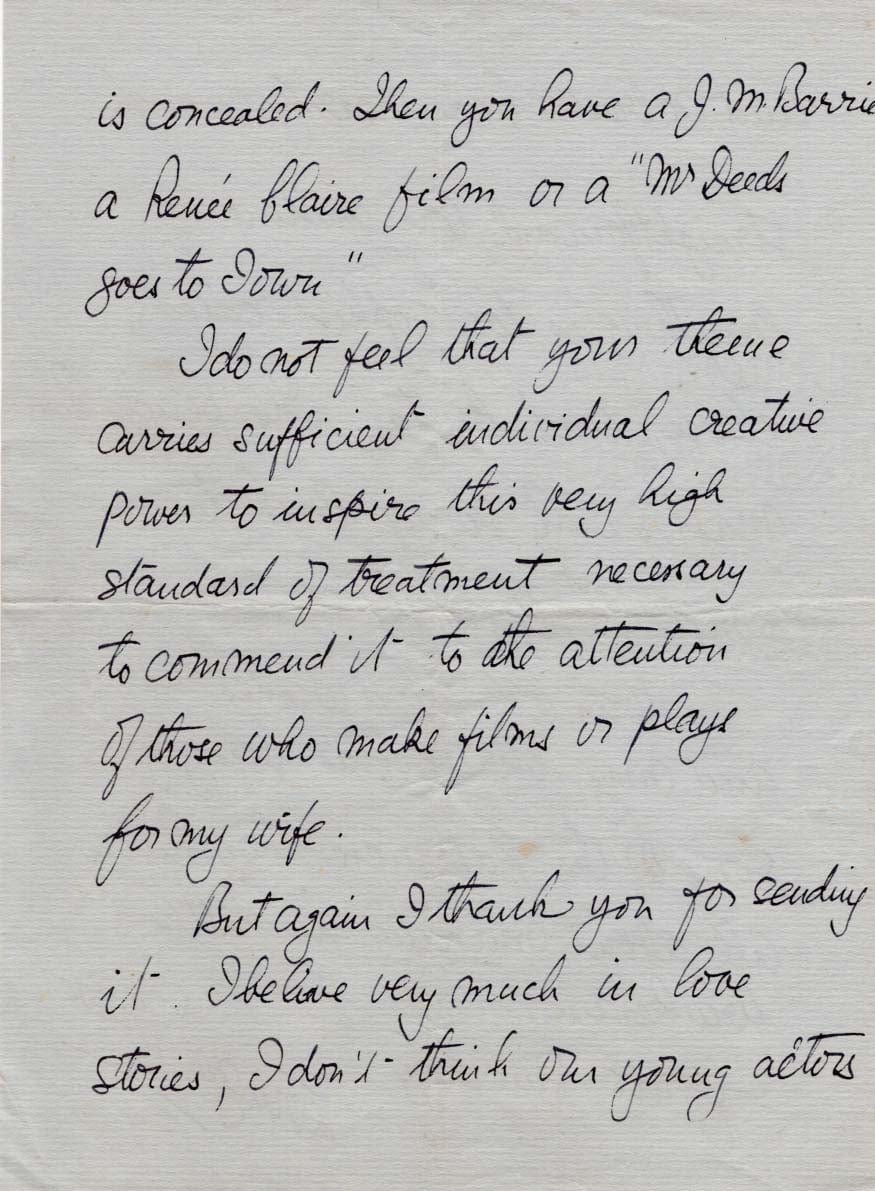 is concealed. Then you have a J. M. Barrie
a Renée Claire film or a "Mr Deeds
goes to Town"
I do not feel that your theme
carries sufficient individual creative
power to inspire this very high
standard of treatment necessary
to commend it to the attention
of those who make films or plays
for my wife.
But again I thank you for sending
it. I believe very much in love
stories, I don't think our young actors